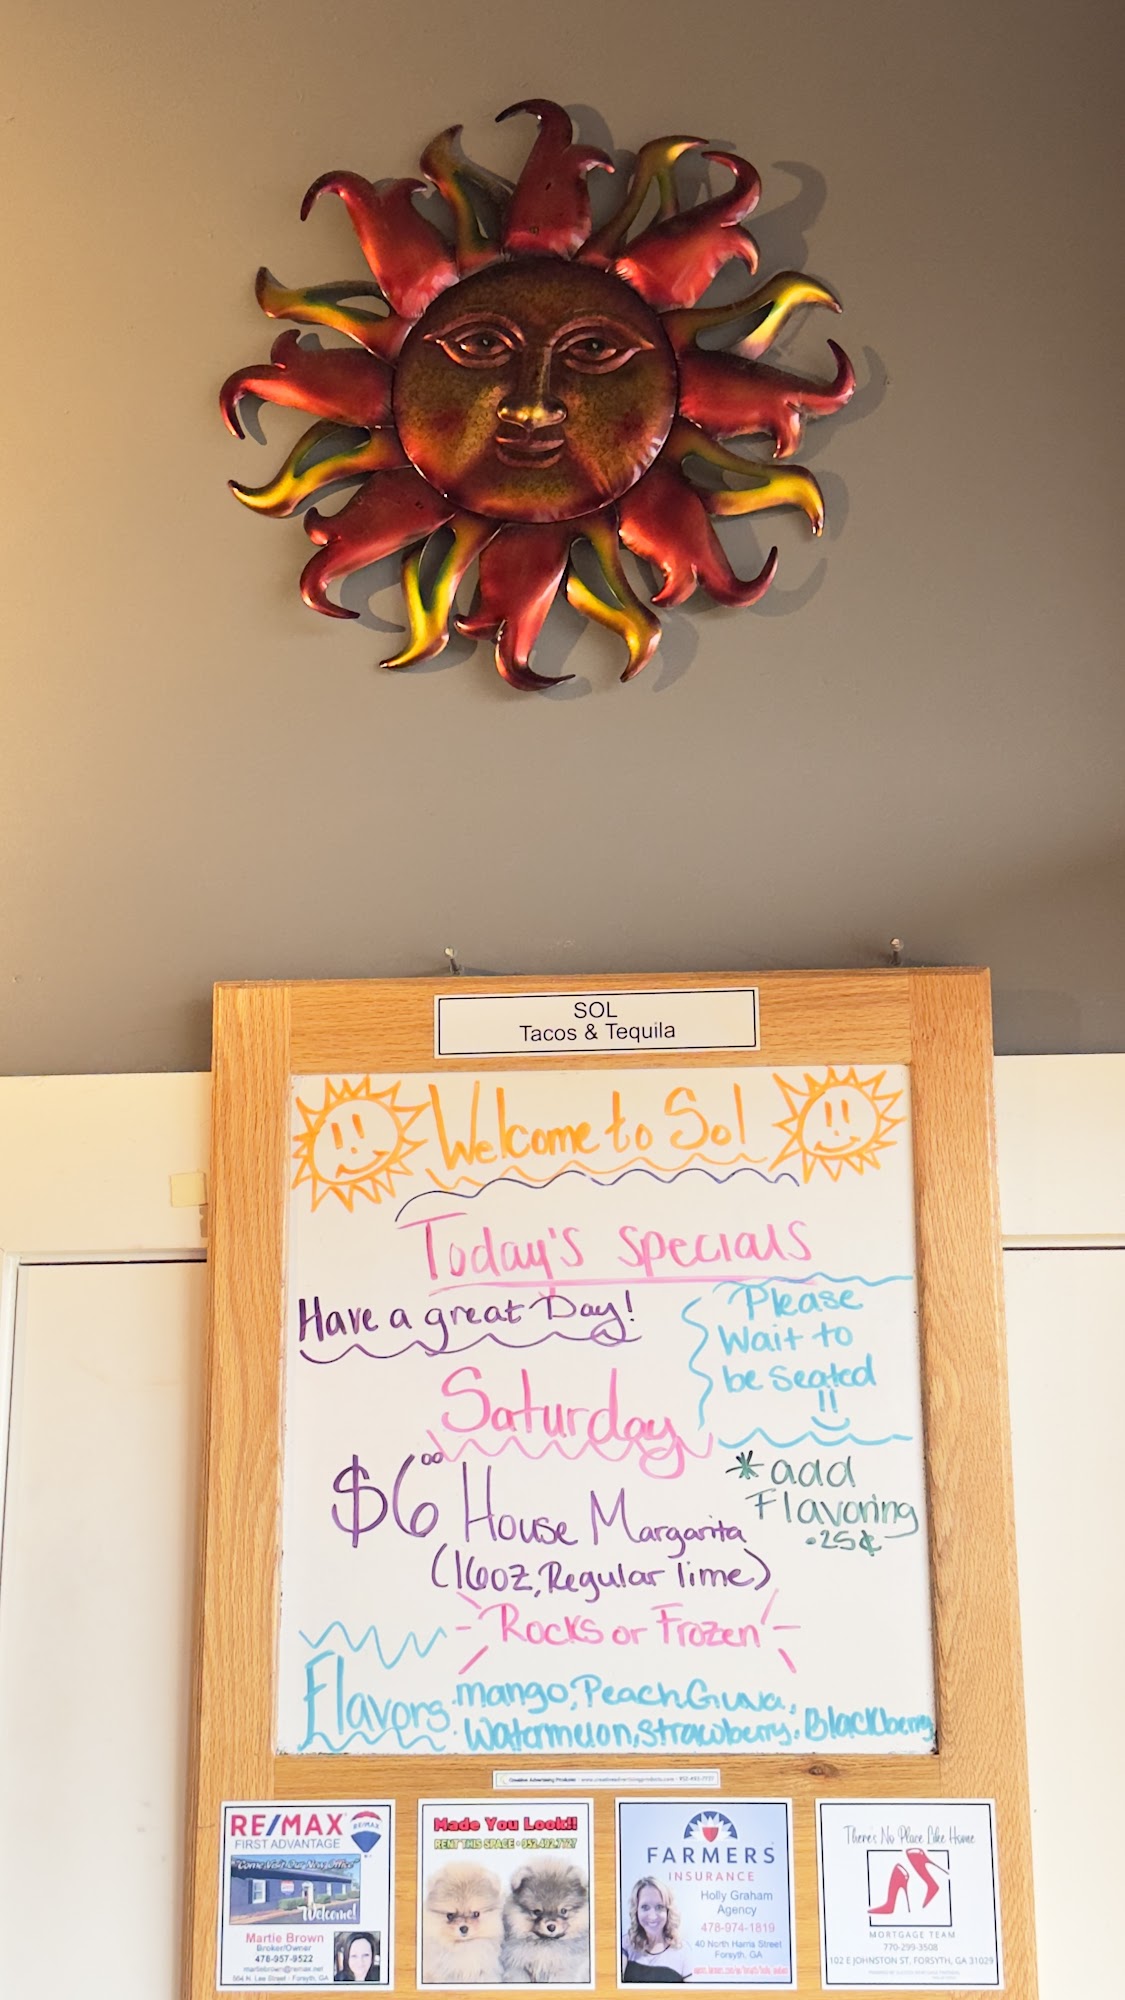 SOL
Tacos & Tequila
Welcome to Sol
Today's Specials
Have a great Day!
Please
Wait to
be Seated
Saturday
$6⁰⁰ House Margarita
(16oz, Regular lime)
*add
Flavoring
.25¢
Rocks or Frozen
Flavors:
mango, Peach, Guava,
Watermelon, Strawberry, Blackberry
Creative Advertising Products - www.creativeadvertisingproducts.com - 952-492-7727
RE/MAX
FIRST ADVANTAGE
RE/MAX
"Come Visit Our New Office"
Welcome!
Martie Brown
Broker/Owner
478-957-9522
martiebrown@remax.net
504 N. Lee Street - Forsyth, GA
Made You Look!!
RENT THIS SPACE - 952.492.7727
FARMERS
INSURANCE
Holly Graham
Agency
478-974-1819
40 North Harris Street
Forsyth, GA
There's No Place Like Home
MORTGAGE TEAM
770-299-3508
102 E JOHNSTON ST. FORSYTH, GA 31029